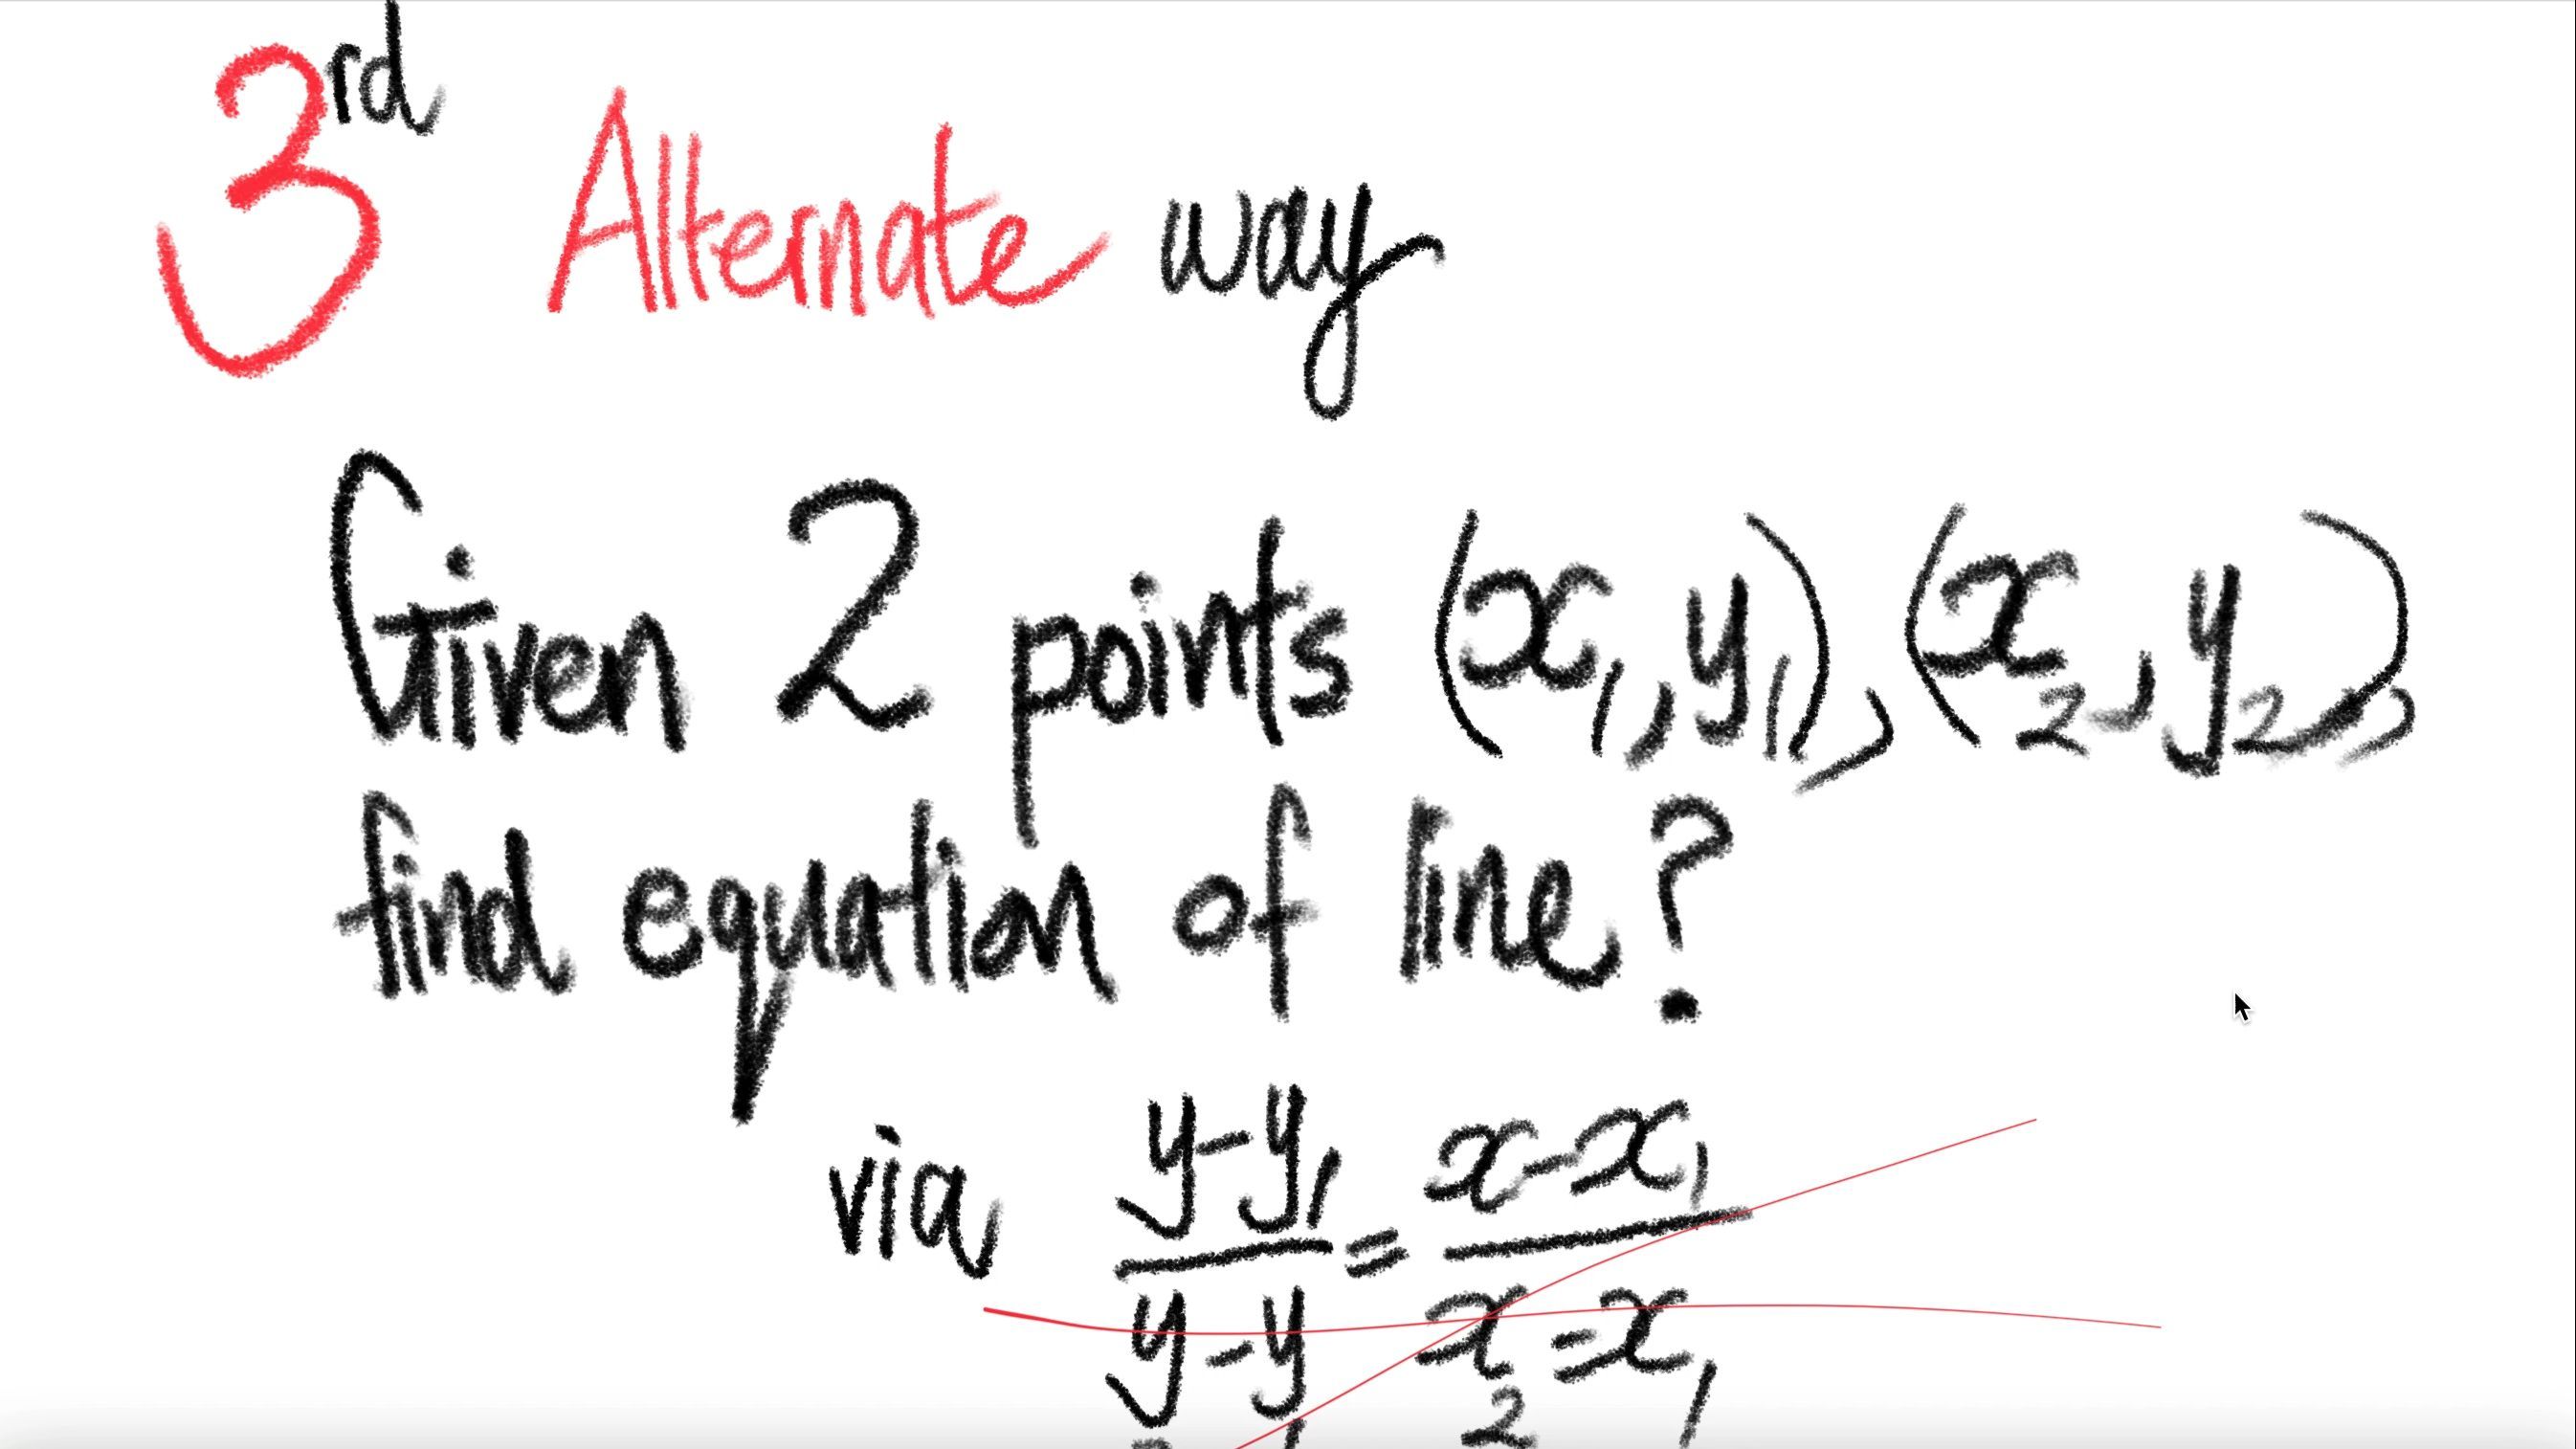 3rd Alternate way
Given 2 points (x₁, y₁), (x₂, y₂),
find equation of line?
via y-y₁ = x-x₁
y₂-y₁ x₂-x₁